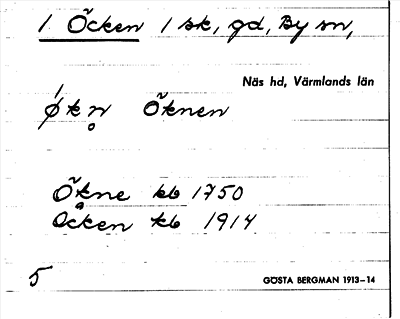 1 Öcken 1 sk, gd, By sn,
Näs hd, Värmlands län
økn̥ Öknen
Ökne kb 1750
Öcken kb 1914
5
GÖSTA BERGMAN 1913–14